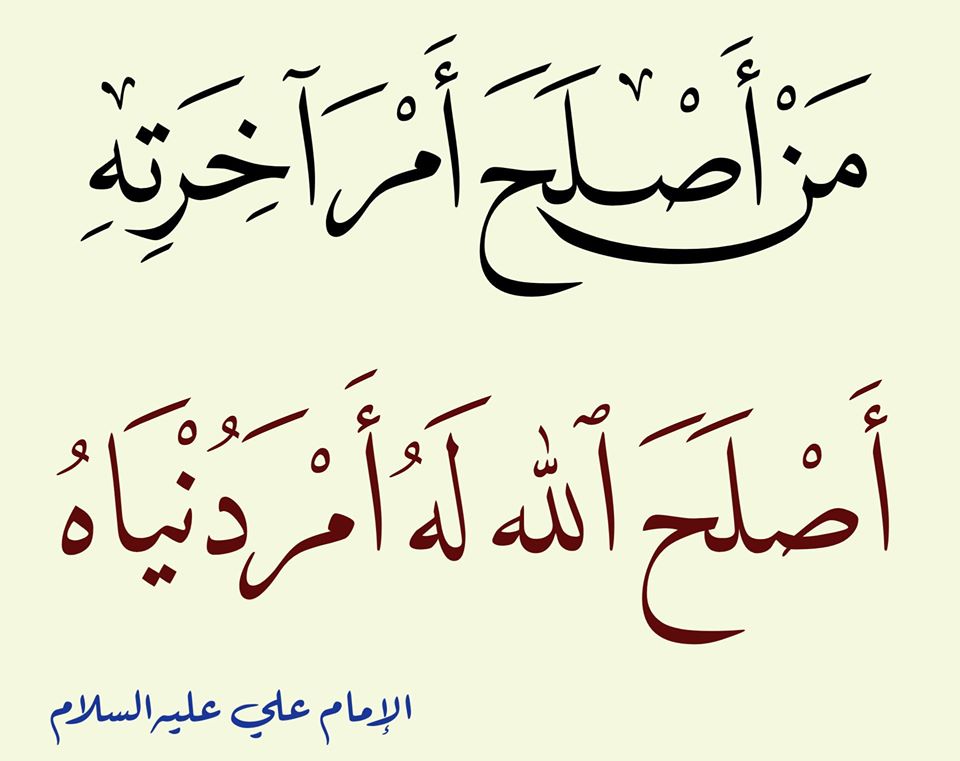 مَنْ أَصْلَحَ أَمْرَ آخِرَتِهِ
أَصْلَحَ ٱللّٰه لَهُ أَمْرَ دُنْيَاهُ
الإمام علي عليه السلام